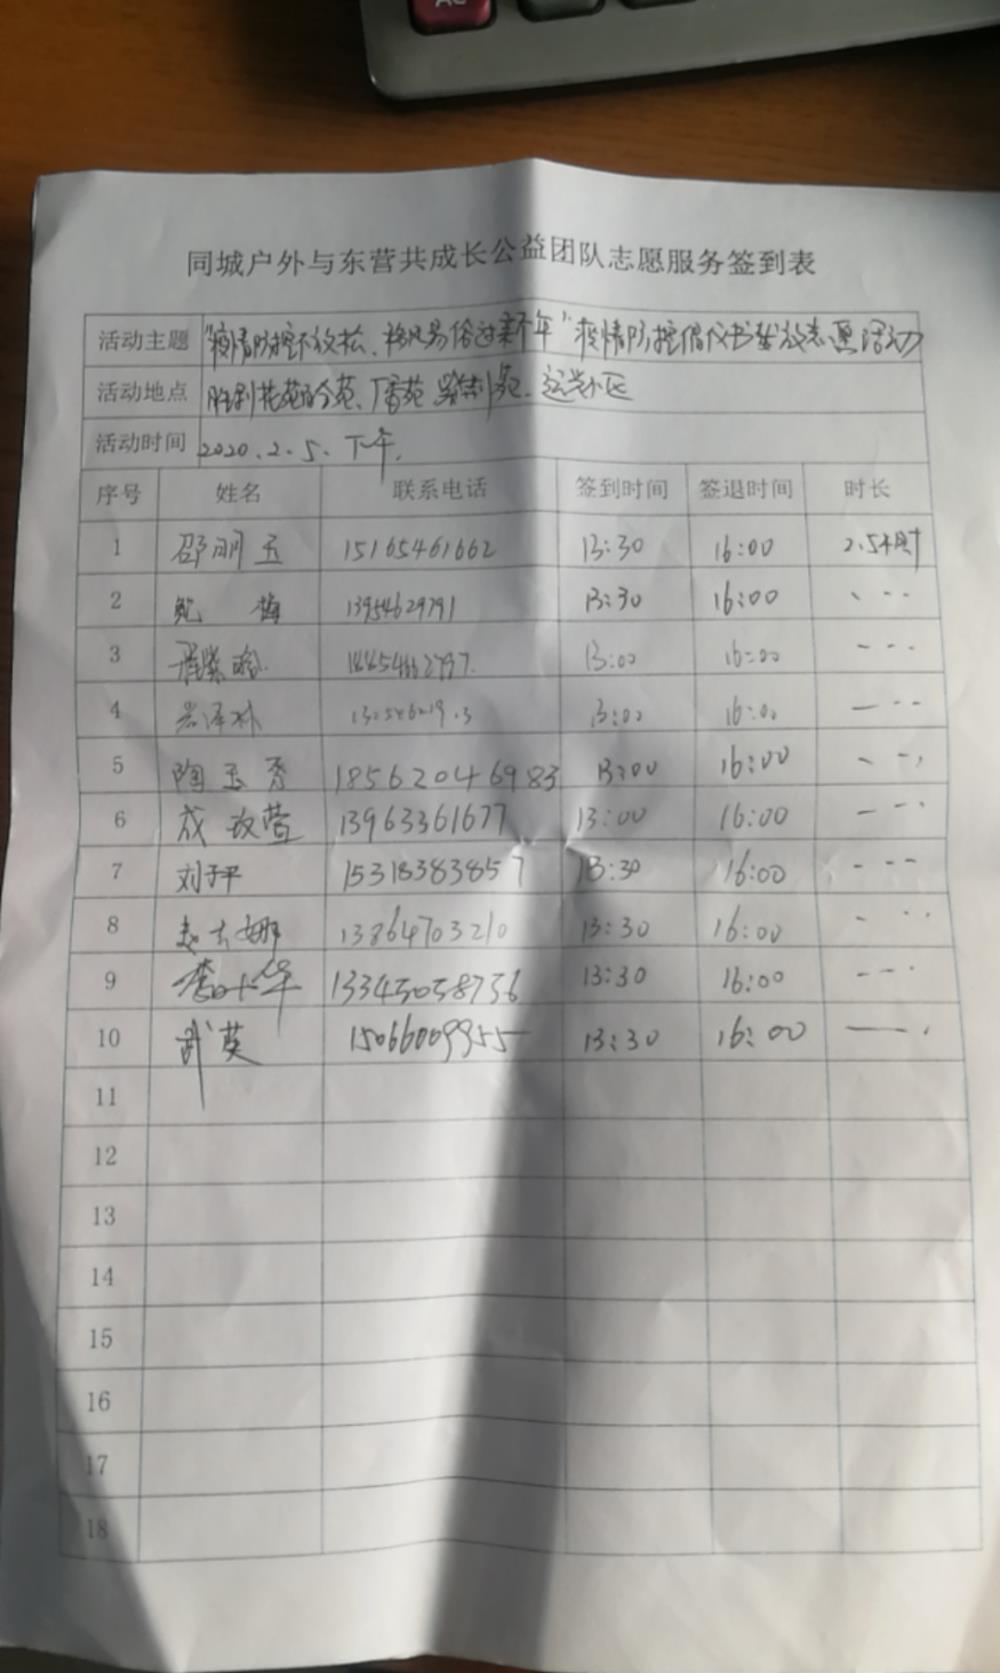 AC
同城户外与东营共成长公益团队志愿服务签到表
活动主题 "疫情防控不放松、移风易俗过新年"疫情防控倡议书发放志愿活动
活动地点 胜利花苑 苑、丁香苑 苑、运 小区
活动时间 2020.2.5.下午.
序号 姓名 联系电话 签到时间 签退时间 时长
1 邵明玉 15165461662 13:30 16:00 2.5小时
2 鲍梅 13954629791 13:30 16:00
3 13:00 16:00
4 13:00 16:00
5 陶玉秀 18562046983 13:00 16:00
6 成玫萱 13963361677 13:00 16:00
7 刘子平 15318383857 13:30 16:00
8 赵云娜 13864703210 13:30 16:00
9 李叶华 13345058756 13:30 16:00
10 武英 15066009955 13:30 16:00
11
12
13
14
15
16
17
18